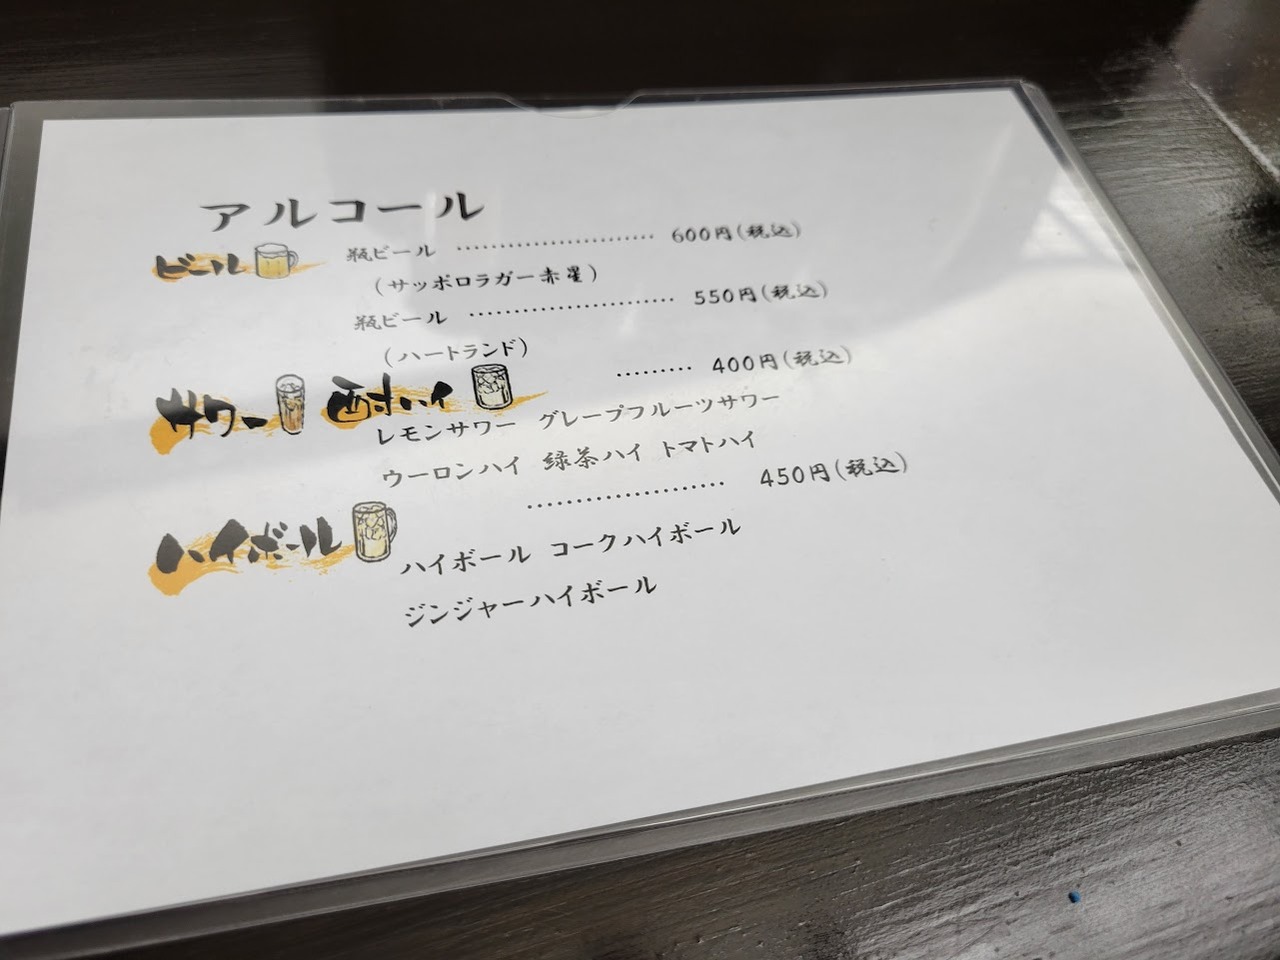 アルコール
ビール 瓶ビール ........................ 600円(税込)
(サッポロラガー赤星)
瓶ビール ........................ 550円(税込)
(ハートランド)
サワー 酎ハイ ......... 400円(税込)
レモンサワー グレープフルーツサワー
ウーロンハイ 緑茶ハイ トマトハイ
ハイボール ....................... 450円(税込)
ハイボール コークハイボール
ジンジャーハイボール